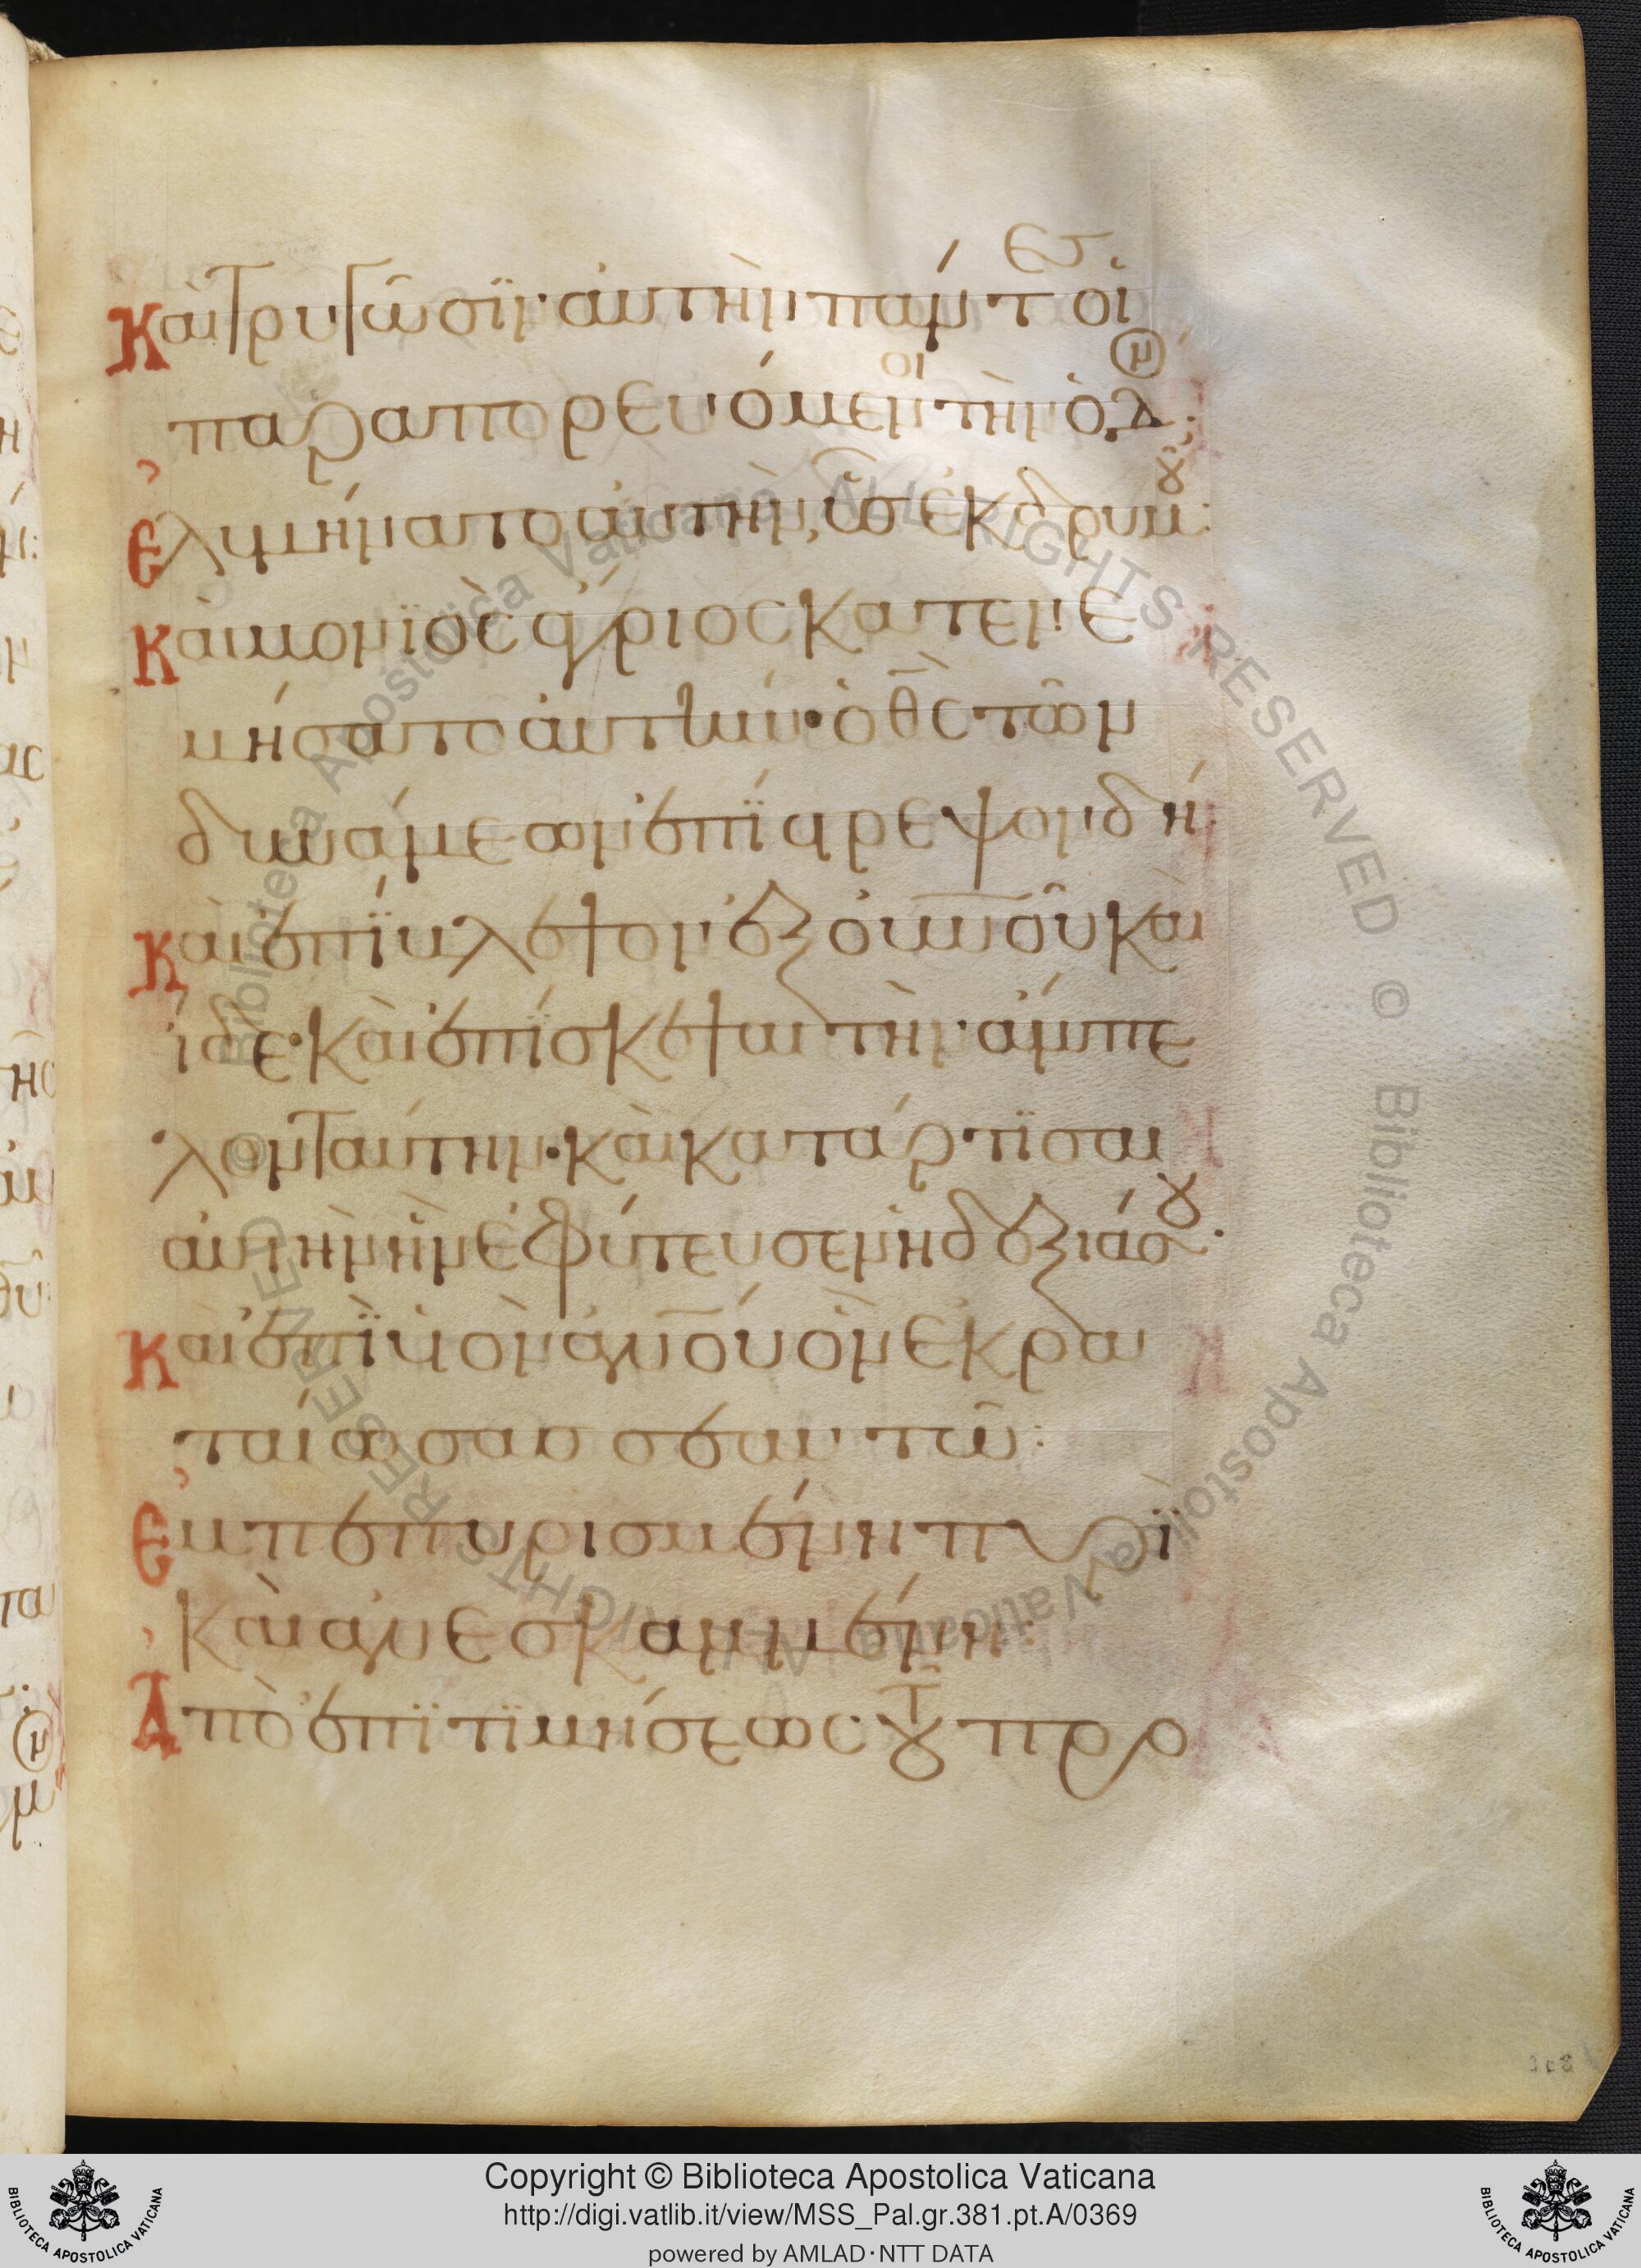 Καὶ τρυγῶσϊν αὐτὴν πάντες οἱ
παραπορευόμενοι τὴν ὁδὸν:
Ἐλυμήνατο αὐτὴν ὗς ἐκ δρυμοῦ:
Καὶ μονϊὸς ἄγριος κατενε
μήσατο αὐτήν· ὁ θς τῶν
δυνάμεων ἐπίστρεψον δή·
Καὶ ἐπίβλεψον ἐξ οὐνοῦ καὶ
ίδε· καὶ ἐπίσκεψαι τὴν ἄμπε
λον ταύτην· καὶ κατάρτϊσαι
αὐτὴν ἣν ἐφύτευσεν ἡ δεξιά σου·
Καὶ ἐπῒ υἱὸν ἀνου ὃν ἐκρα
ταίωσας σεαυτῶ:
Ἐμπεπυρισμένη πυρῒ
καὶ ἀνεσκαμμένη:
Ἀπὸ ἐπϊτϊμήσεως τοῦ προ
108
Copyright © Biblioteca Apostolica Vaticana
http://digi.vatlib.it/view/MSS_Pal.gr.381.pt.A/0369
powered by AMLAD·NTT DATA